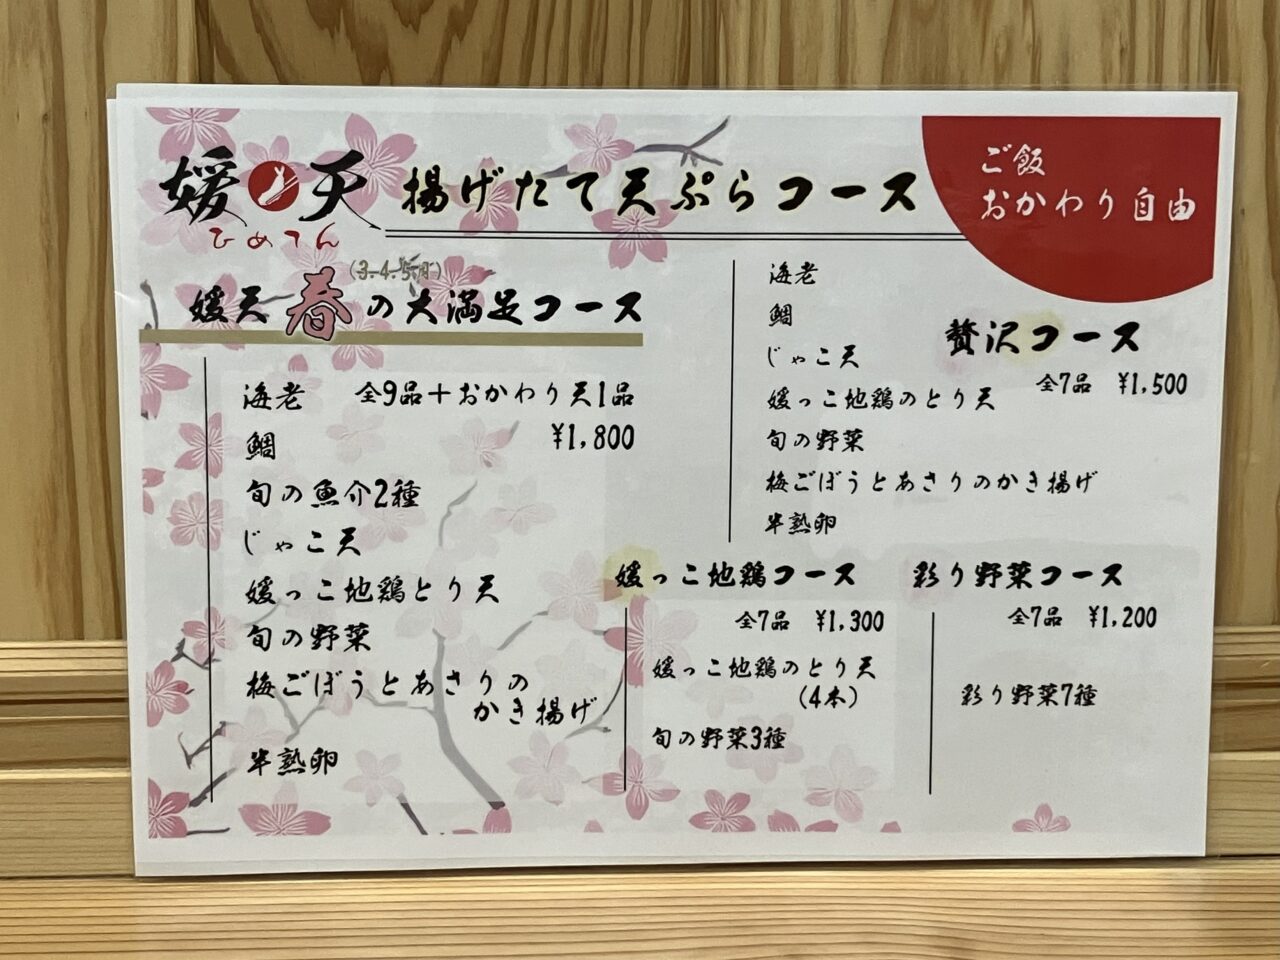 媛天
ひめてん
揚げたて天ぷらコース
ご飯
おかわり自由
(3.4.5月)
媛天春の大満足コース
全9品+おかわり天1品
¥1,800
海老
鯛
旬の魚介2種
じゃこ天
媛っこ地鶏とり天
旬の野菜
梅ごぼうとあさりの
かき揚げ
半熟卵
贅沢コース
全7品 ¥1,500
海老
鯛
じゃこ天
媛っこ地鶏のとり天
旬の野菜
梅ごぼうとあさりのかき揚げ
半熟卵
媛っこ地鶏コース
全7品 ¥1,300
媛っこ地鶏のとり天
(4本)
旬の野菜3種
彩り野菜コース
全7品 ¥1,200
彩り野菜7種